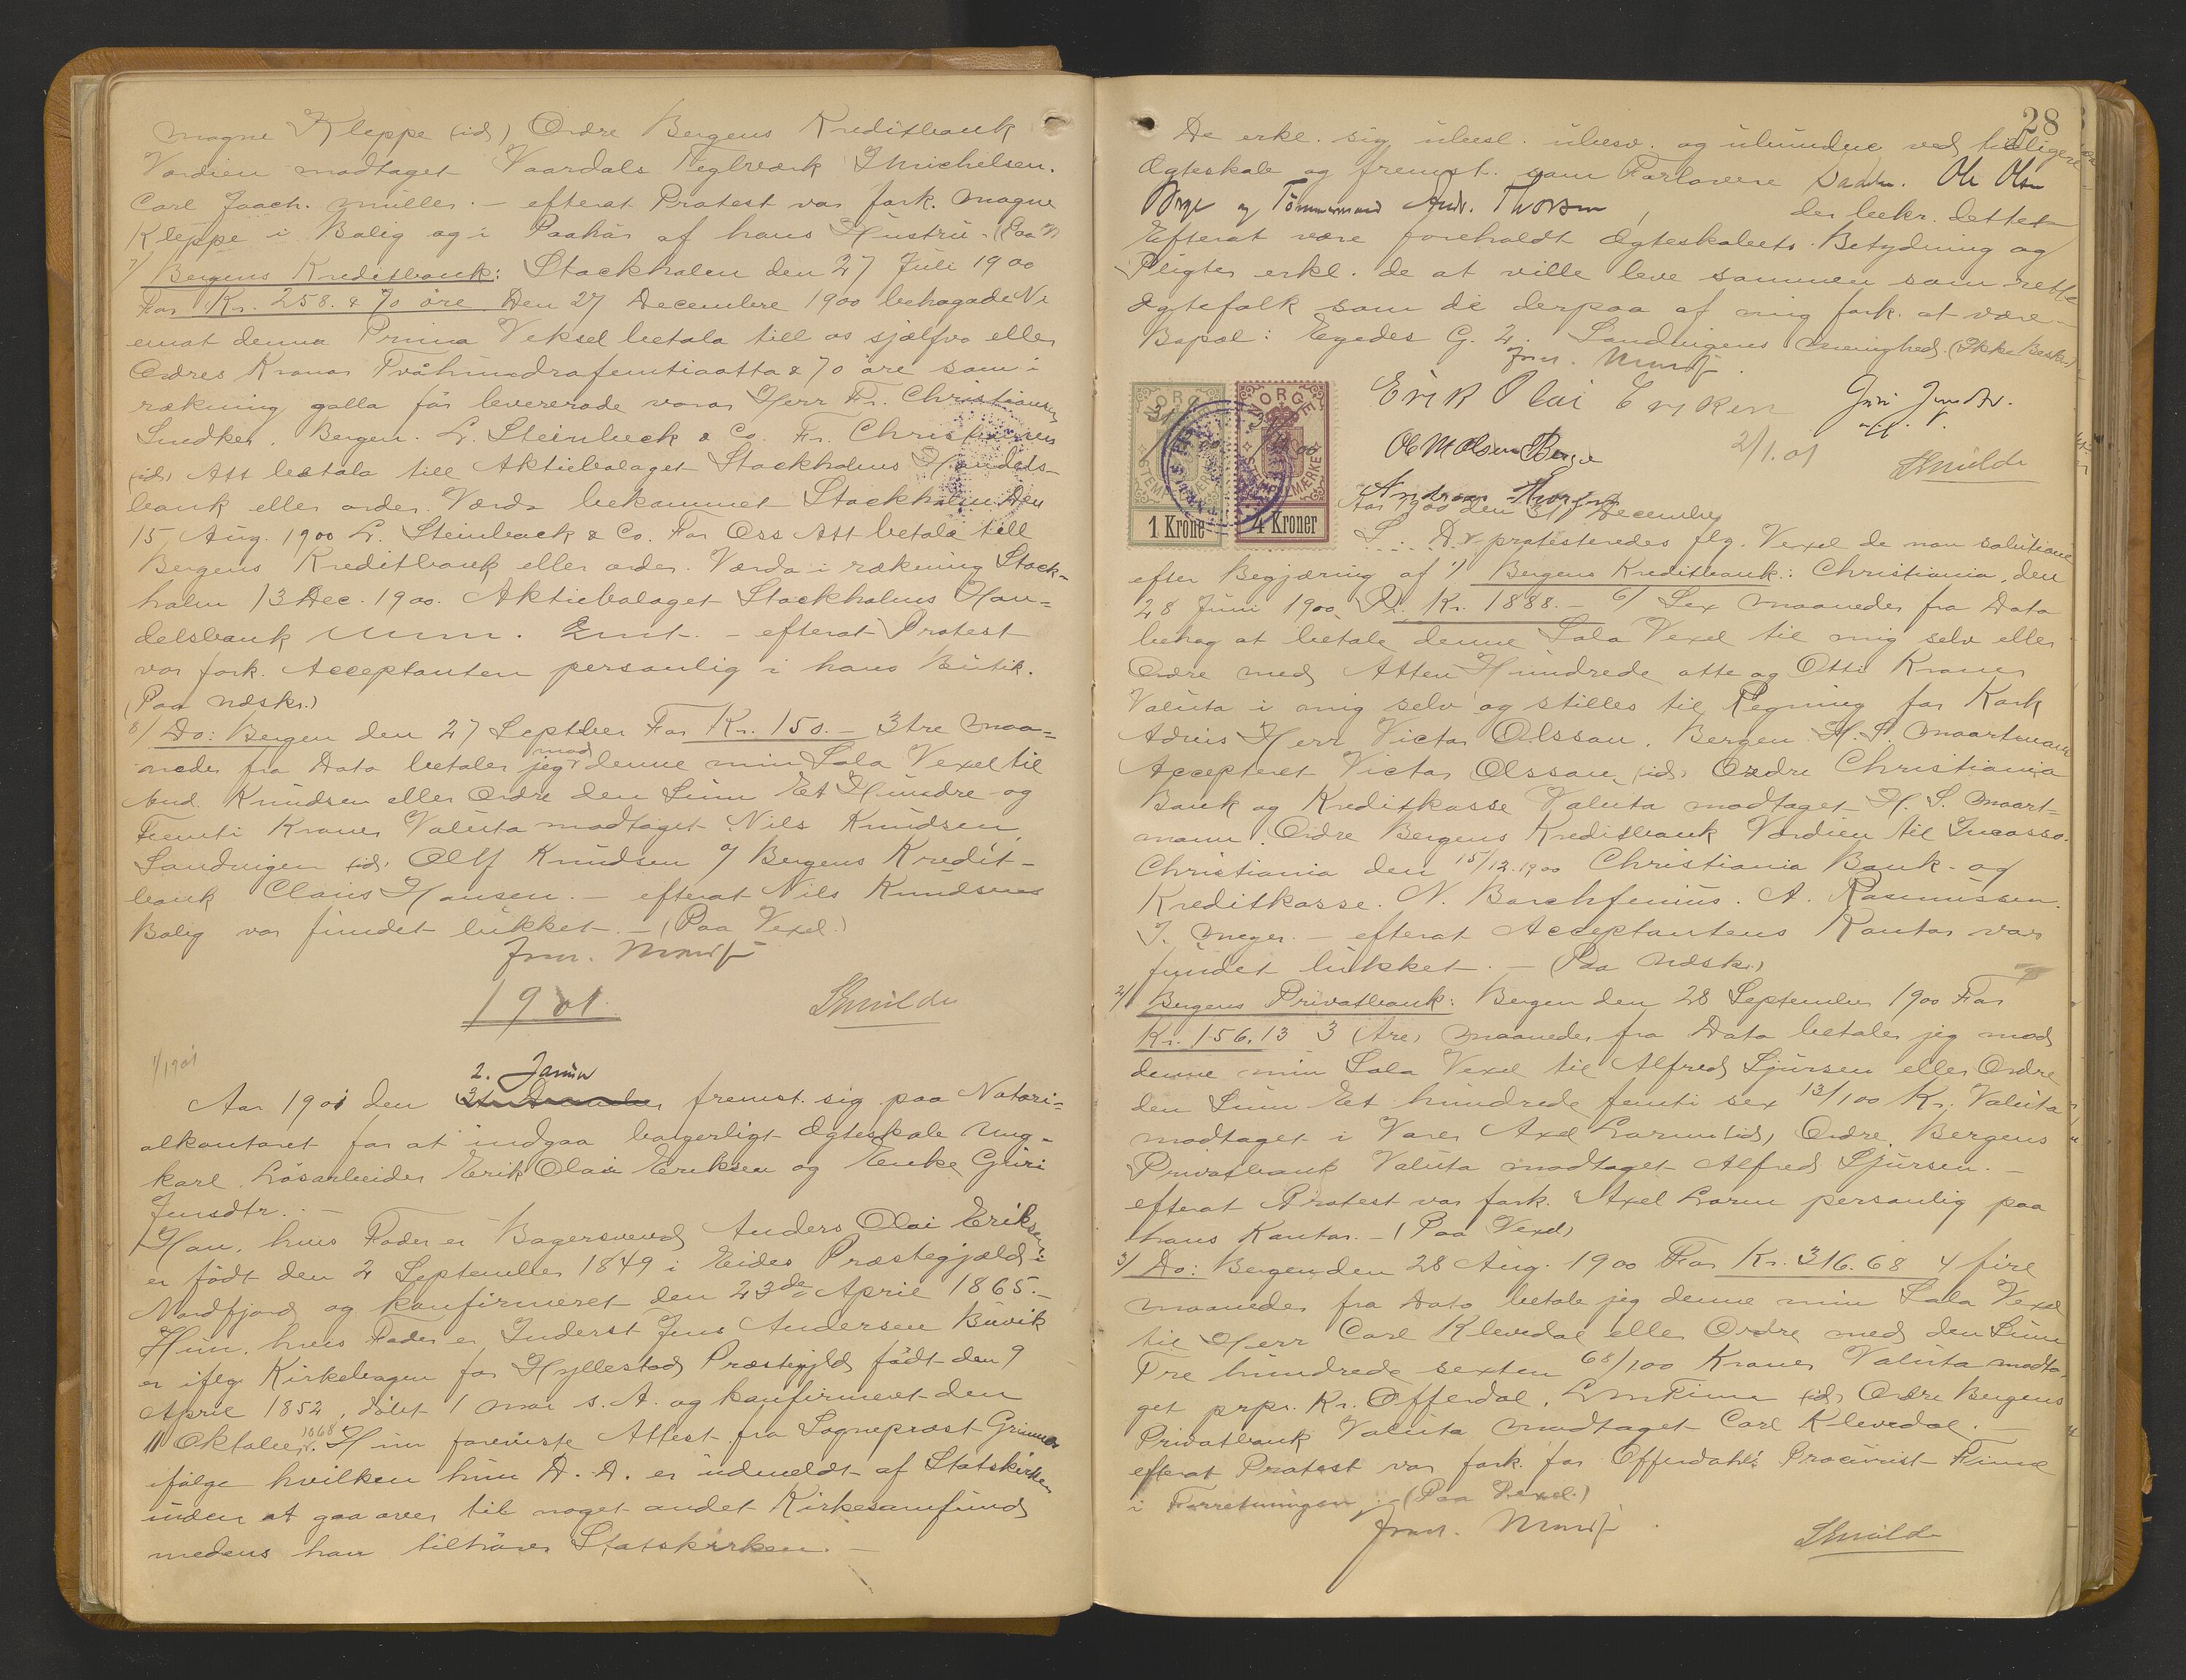 Magne Kleppe (id) Ordre Bergens Kreditbank
Værdien modtaget Vaardals Teglværk J Michelsen.
Carl Joach. Müller. – efterat Protest var fork. Magne
Kleppe i Bolig og i Paahör af hans Hustru. (Paa
7/ Bergens Kreditbank: Stockholm den 27 Juli 1900
For Kr. 258. & 70 öre. Den 27 Decembre 1900 behagade Ni
emot denna Prima Veksel betala till os sjelfva eller
Ordres Kronor Tvåhundrafemtioatta & 70 öre som i
räkning galla för levererade varor Herr Fr. Christiansen
Snedker. Bergen. L. Steinbeck & Co. Fr. Christiansen
(id) Att betala till Aktiebolaget Stockholms Handels-
bank eller order. Værda bekommet Stockholm den
15 Aug. 1900 L. Steinbeck & Co. For Oss Att betala till
Bergens Kreditbank eller order. Værda i räkning Stock-
holm 13 Dec. 1900. Aktiebolaget Stockholms Han=
delsbank – efterat Protest
var fork. Acceptanten personlig i hans Butik.
(Paa Ndskr.)
8/ Do: Bergen den 27 Septber For Kr. 150. – 3 tre Maa=
neder fra Dato betaler jeg mod denne min Sola Vexel til
And. Knudsen eller Ordre den Sum Et Hundre og
Femti Kroner Valuta modtaget Nils Knudsen,
Sandvigen (id) Olf Knudsen Bergens Kredit-
bank Claus Hansen. – efterat Nils Knudsens
Bolig var fundet lukket. – (Paa Vexel.)
1901.
Smulde
1/1901
2. Januar
Aar 1901 den fremst. sig paa Notari=
alkontoret for at indgaa borgerligt Ægteskab Ung-
karl. Lösarbeider Erik Olai Eriksen og Enke Guri
Jensdtr. –
Han, hvis Fader er Bagersvend Anders Olai Eriksen,
er födt den 2 September 1849 i Eides Præstegjæld i
Nordfjord og konfirmeret den 23de April 1865. –
Hun, hvis Fader er Inderst Jens Andersen Buvik
er iflg. Kirkebogen for Hyllestad Præstegjld födt den 9
April 1852, döbt 1 Mai s. A. og konfirmeret den
11 Oktober 1868. Hun foreviste Attest fra Sogneprest Grimnes
ifölge hvilken hun D. D. er udmeldt af Statskirken
uden at gaa over til noget andet Kirkesamfund
medens han tilhörer Statskirken. –
28
De erkl. sig ubesl. ubesv. og ubundne ved tidligere
Ægteskab og fremst. som Forlovere Ole Olsen
Berge og Tömmermand Andr. Thorsen, der bekr. dette. –
Efterat være foreholdt Ægteskabets Betydning og
Pligter erkl. de at ville leve sammen som rette
Ægtefolk som de derpaa af mig fork. at være –
Bopæl: Egedes G. 2. Sandvigens Menighed. (Ikke Besk.)
NORGE
STEMPELMÆRKE
1 Krone
NORGE
STEMPELMÆRKE
4 Kroner
Erik Olai Eriksen Guri Jensdtr.
m. f. P.
Ole M Olsen Berge 2/1. 01 Smulde
Andreas Thorsen
Aar 1900 den 31 December
protesteredes flg. Vexel de non solutione
efter Begjæring af 1/ Bergens Kreditbank: Christiania, den
28 Juni 1900 Pr. Kr. 1888. – 6/ Sex Maaneder fra Dato
behag at betale denne Sola Vexel til mig selv eller
Ordre med Atten Hundrede otte og Otti Kroner
Valuta i mig selv og stilles til Regning for Kork
Adris Herr Victor Olsson. Bergen H. S. Maartmann
Accepteret Victor Olsson (id) Ordre Christiania
Bank og Kreditkasse Valuta modtaget H. S. Maart=
mann. Ordre Bergens Kreditbank Værdien til Incasso.
Christiania den 15/12.1900 Christiania Bank- og
Kreditkasse. N. Borchfenius. A. Rasmussen.
J. Meyer. – efterat Acceptantens Kontor var
fundet lukket. – (Paa Ndskr.)
2/ Bergens Privatbank: Bergen den 28 September 1900 For
Kr. 156.13 3 (tre) Maaneder fra Dato betaler jeg mod
denne min Sola Vexel til Alfred Sjursen eller Ordre
den Sum Et hundrede femti sex 13/100 Kr. Valuta
modtaget i Varer Axel Lorm (id) Ordre. Bergens
Privatbank Valuta modtaget Alfred Sjursen. –
efterat Protest var fork. Axel Lorm personlig paa
hans Kontor. – (Paa Vexel)
3/ Do: Bergen den 28 Aug. 1900 For Kr. 316.68 4 fire
Maaneder fra Dato betale jeg denne min Sola Vexel
til Herr Carl Klevedal eller Ordre med den Sum
Tre hundrede sexten 68/100 Kroner Valuta modta-
get prpr. Kr. Offerdal. Finne (id) Ordre Bergens
Privatbank Valuta modtaget Carl Klevedal. –
efterat Protest var fork. for Offerdahls Procurist Finne
i Forretningen. – (Paa Vexel.)
Smulde